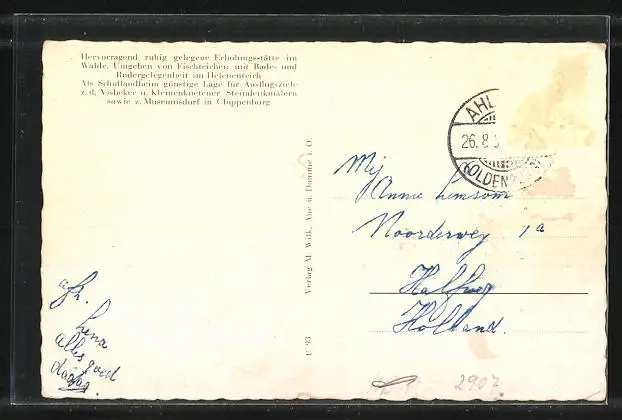 Hervorragend ruhig gelegene Erholungsstätte im
Walde. Umgeben von Fischteichen mit Bade- und
Rudergelegenheit im Helenenteich
Als Schullandheim günstige Lage für Ausflugsziele
z. d. Visbeker u. Kleinenknetener Steindenkmälern
sowie z. Museumsdorf in Cloppenburg
AHL
26.8.
OLDEN
Mej
Annie
Noorderweg 1a
Halfweg
Holland.
afz.
Lena
alles goed
dag
Verlag M. Wilk, Ahe ü. Damme i. O.
U 93
2907